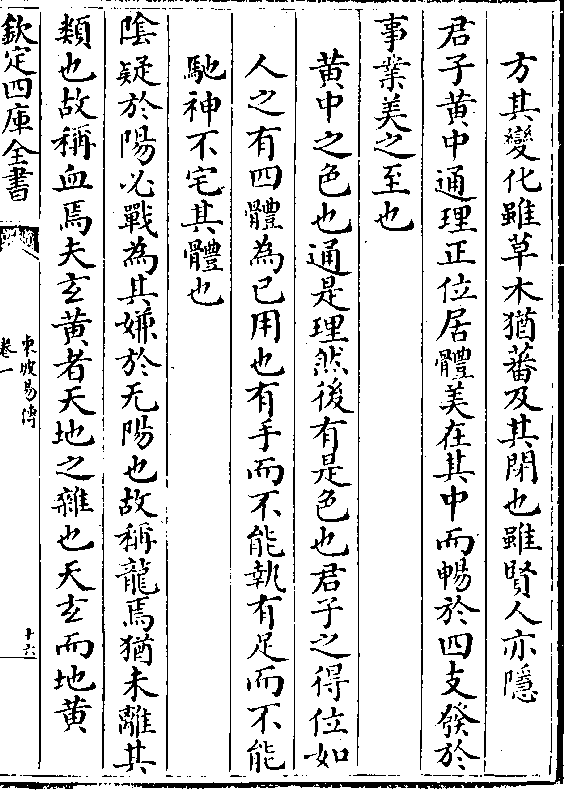 方其變化雖草木猶蕃及其閉也雖賢人亦隱
君子黄中通理正位居體美在其中而暢於四支發於
事業美之至也
黄中之色也通是理然後有是色也君子之得位如
人之有四體為己用也有手而不能執有足而不能
馳神不宅其體也
陰疑於陽必戰為其嫌於无陽也故稱龍焉猶未離其
類也故稱血焉夫玄黄者天地之雜也天玄而地黄
欽定四庫全書
東坡易傳
卷一
十六